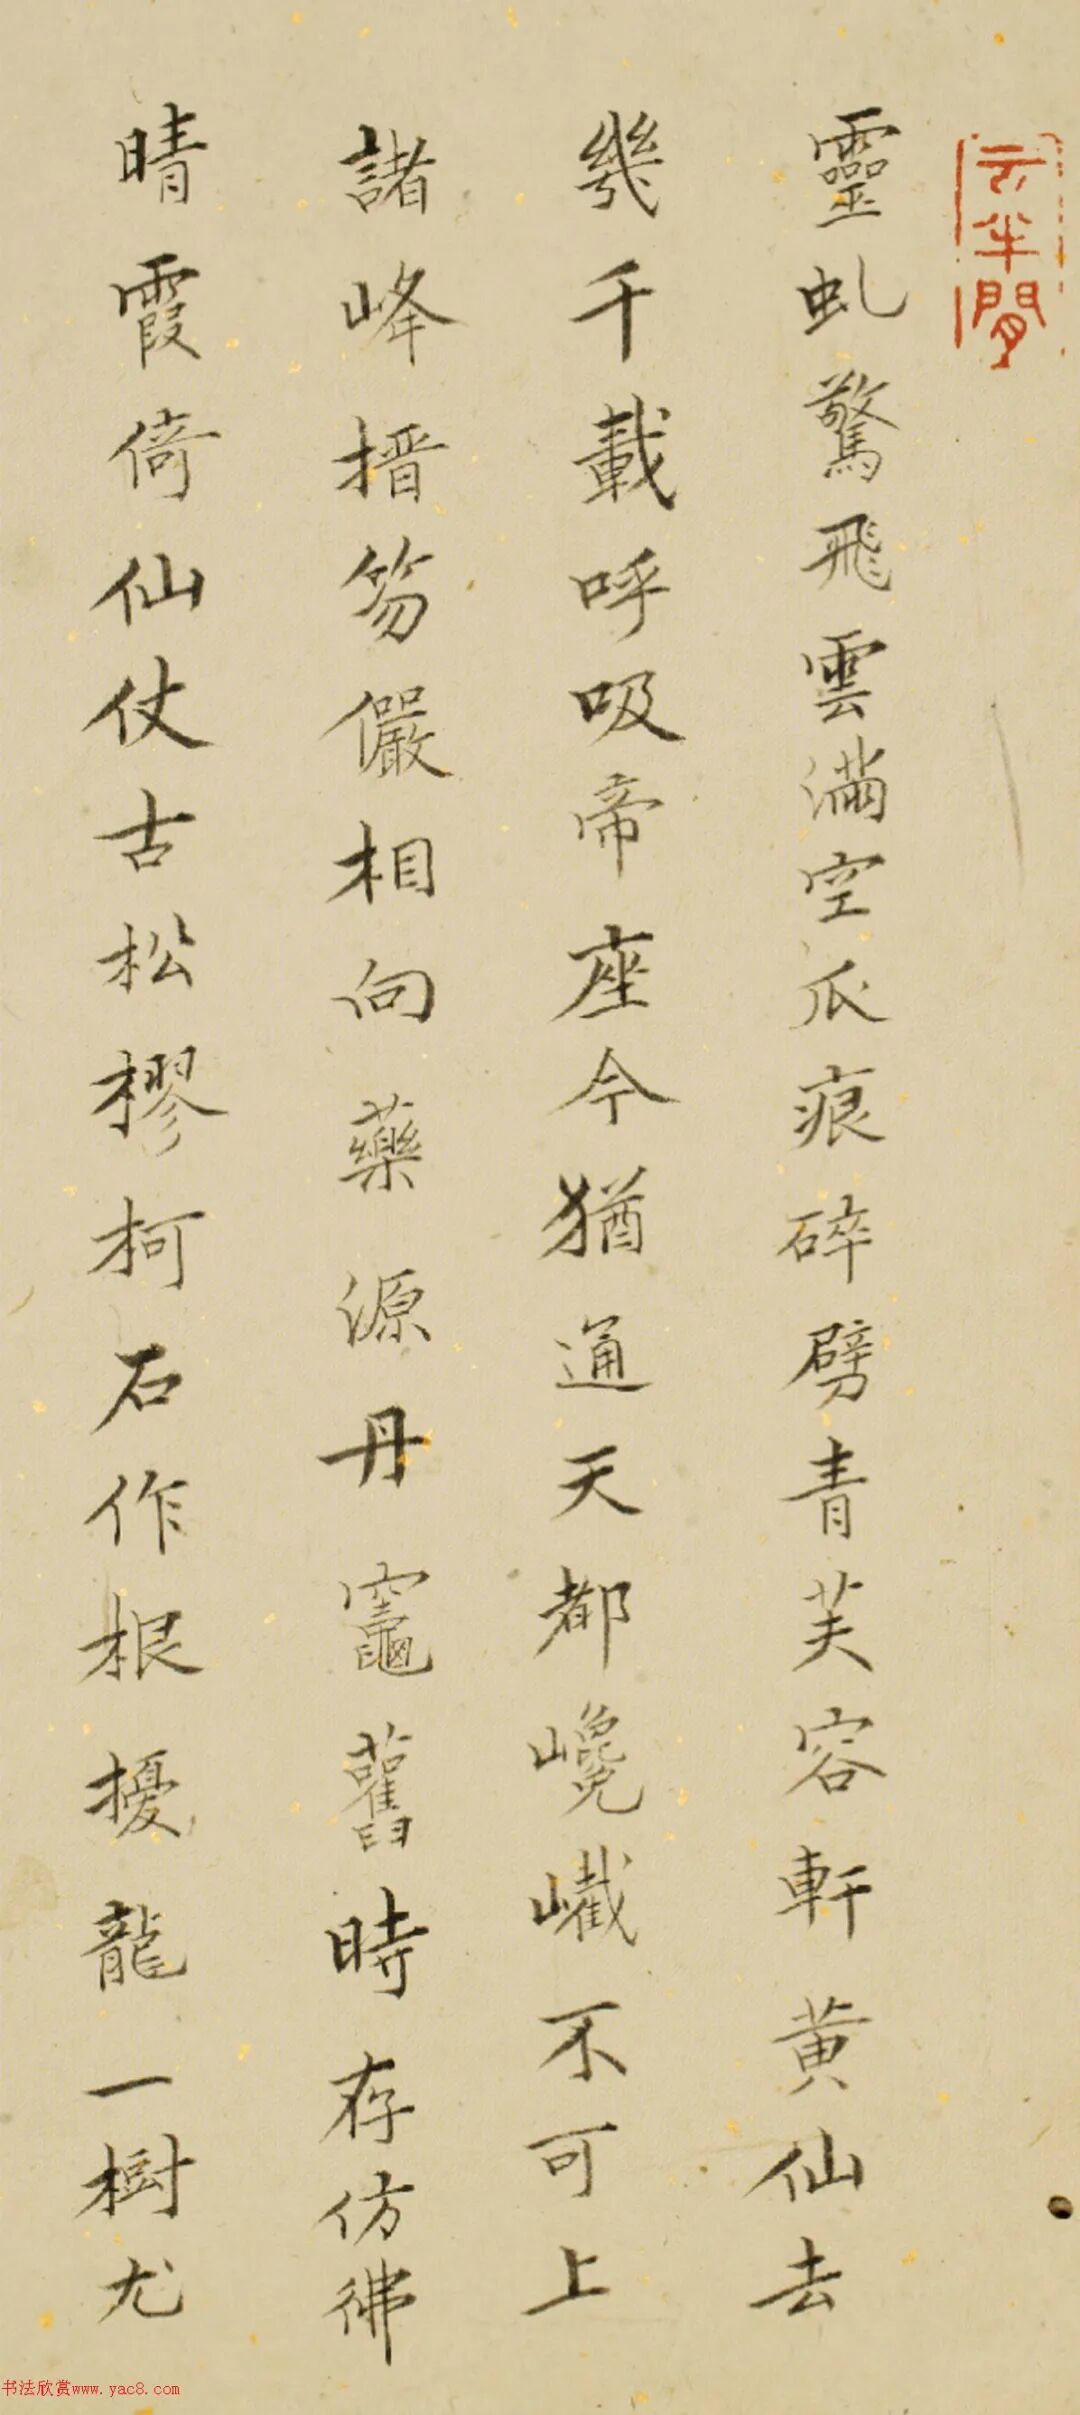 云半間
靈虬驚飛雲滿空爪痕碎劈青芙容軒黄仙去
幾千載呼吸帝座今猶通天都巉巀不可上
諸峰搢笏儼相向藥源丹竈舊時存仿彿
晴霞倚仙仗古松樛柯石作根擾龍一樹尤
书法欣赏www.yac8.com